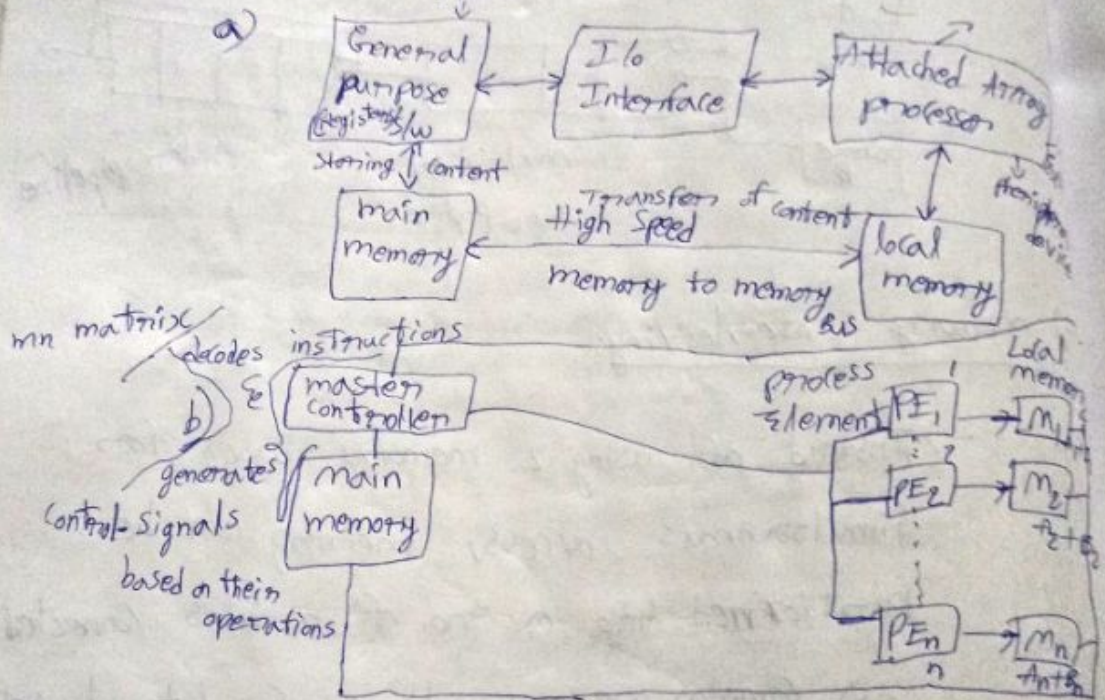 a)
General
purpose
Registers/s/w
I/o
Interface
Attached Array
processor
storing content
main
memory
Transfer of content
High Speed
memory to memory
Bus
local
memory
device
mn matrix
decodes instructions
&
b)
master
controller
generates
control signals
based on their
operations
main
memory
process
Element
Local
memory
1
PE1
M1
2
PE2
M2
A2+B2
PEn
n
Mn
An+Bn